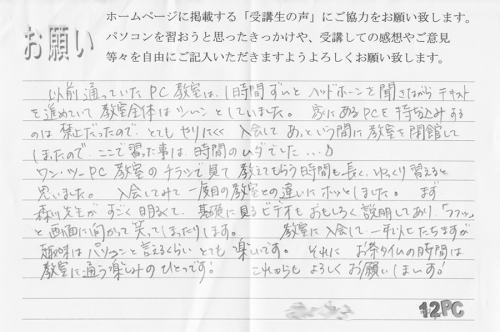 お願い
ホームページに掲載する「受講生の声」にご協力をお願い致します。
パソコンを習おうと思ったきっかけや、受講しての感想やご意見
等々を自由にご記入いただきますようよろしくお願い致します。
以前通っていたPC教室は、1時間ずっとヘッドホーンを聞きながらテキスト
を進めていて教室全体はシーンとしていました。家にあるPCを持ち込みする
のは禁止だったので、とてもやりにくく入会してあっという間に教室を閉館して
しまったので、ここで習った事は時間のムダでした…
ワン・ツーPC教室のチラシで見て教えてもらう時間も長く、ゆっくり習えると
思いました。入会してみて一度目の教室との違いにホッとしました。まず
森川先生がすごく明るくて、基礎に見るビデオもおもしろく説明してあり、「フフッ」
と画面に向かって笑ってしまったりします。教室に入会して一年以上たちますが
趣味はパソコンと言えるくらいとても楽しいです。それにお茶タイムの時間は
教室に通う楽しみのひとつです！これからもよろしくお願いします！
12PC